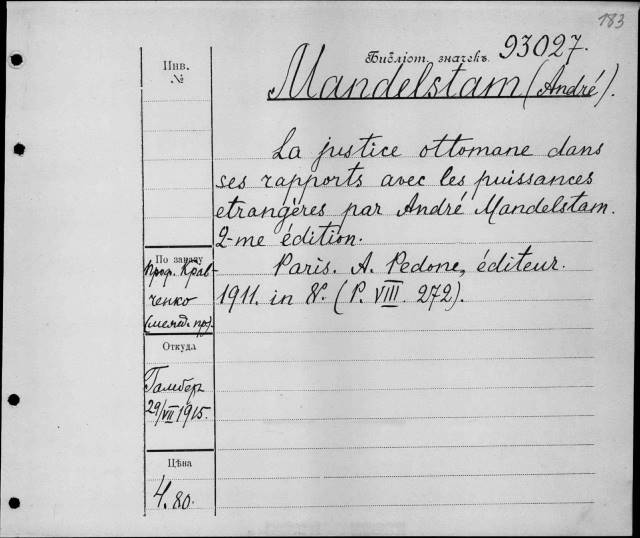 183
Библіот. значекъ 93027.
Mandelstam (André).
Инв.
№
La justice ottomane dans
ses rapports avec les puissances
etrangères par André Mandelstam.
2-me édition.
Paris. A. Pedone, éditeur.
1911. in 8°. (P. VIII. 272).
По заказу
проф. Крав-
ченко
(межд. пр).
Откуда
Гамбер
29/VII 1915.
Цѣна
4.80.